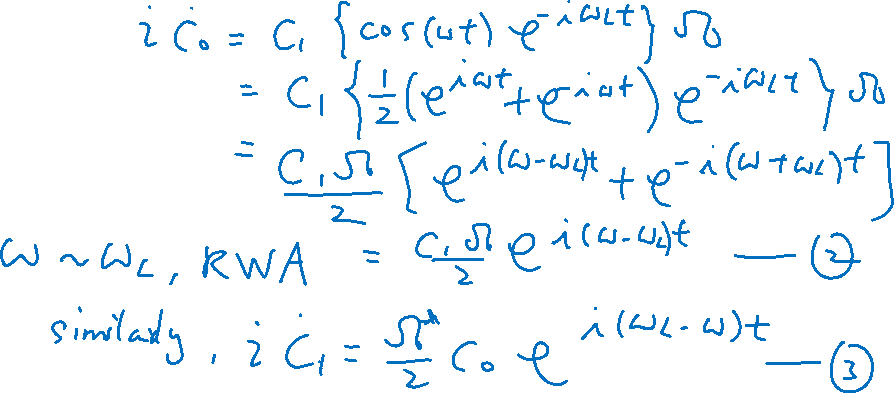 i ċ₀ = C₁ {cos(ωt) e^{-iω_L t}} Ω
= C₁ {½(e^{iωt} + e^{-iωt}) e^{-iω_L t}} Ω
= C₁Ω/2 [e^{i(ω-ω_L)t} + e^{-i(ω+ω_L)t}]
ω ~ ω_L, RWA = C₁Ω/2 e^{i(ω-ω_L)t} — ②
similarly, i ċ₁ = Ω*/2 C₀ e^{i(ω_L-ω)t} — ③